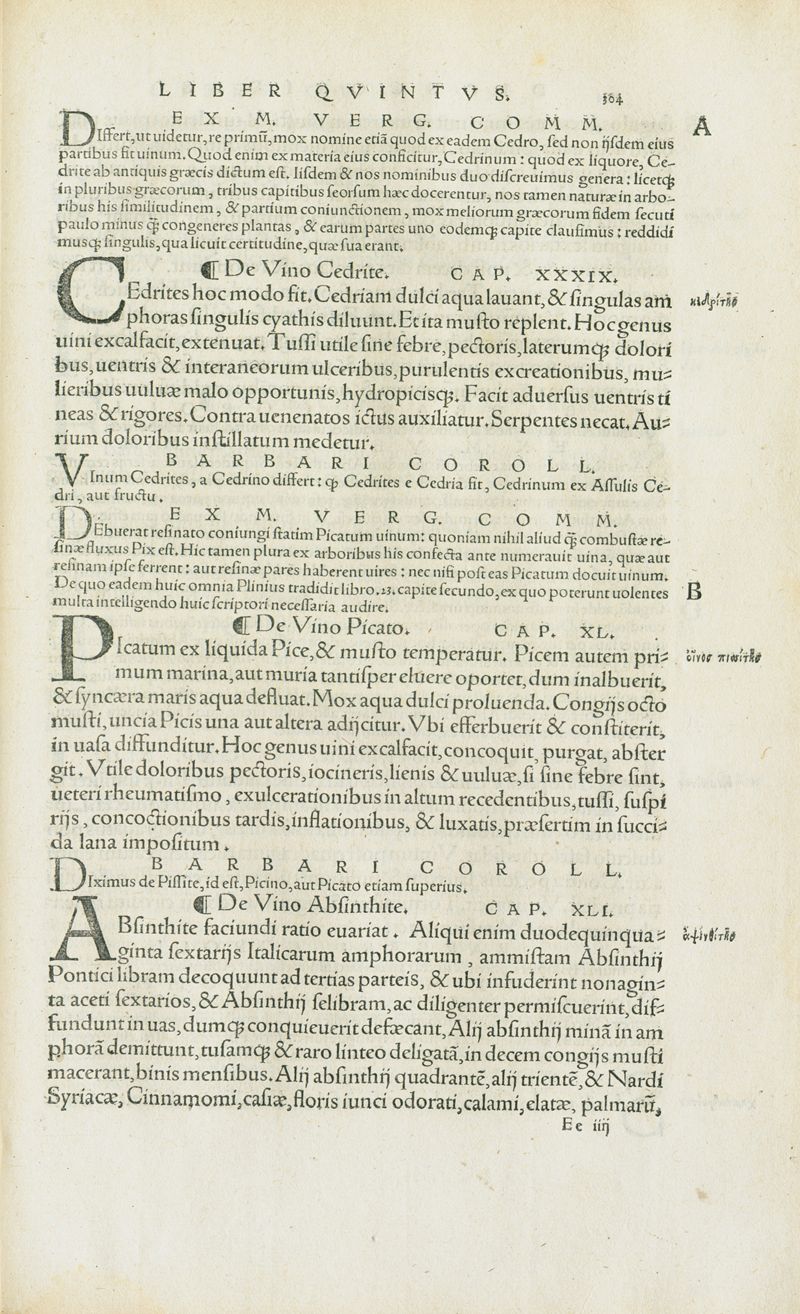 LIBER QVINTVS. 304
EX M. VERG. COMM. A
DIffert, ut uidetur, re primū, mox nomine etiā quod ex eadem Cedro, sed non ijsdem eius
partibus fit uinum. Quod enim ex materia eius conficitur, Cedrinum: quod ex liquore, Ce-
drite ab antiquis græcis dictum est. Iisdem & nos nominibus duo discreuimus genera: licetq;
in pluribus græcorum, tribus capitibus seorsum hæc docerentur, nos tamen naturæ in arbo-
ribus his similitudinem, & partium coniunctionem, mox meliorum græcorum fidem secuti
paulo minus q̃ congeneres plantas, & earum partes uno eodemq; capite clausimus: reddidi
musq; singulis, qua licuit certitudine, quæ sua erant.
¶ De Vino Cedrite. CAP. XXXIX.
CEdrites hoc modo fit. Cedriam dulci aqua lauant, & singulas am κιδρίτης
phoras singulis cyathis diluunt. Et ita musto replent. Hoc genus
uini excalfacit, extenuat. Tussi utile sine febre, pectoris, laterumq; dolori
bus, uentris & interaneorum ulceribus, purulentis excreationibus, mu-
lieribus uuluæ malo opportunis, hydropicisq;. Facit aduersus uentris ti
neas & rigores. Contra uenenatos ictus auxiliatur. Serpentes necat. Au-
rium doloribus instillatum medetur.
BARBARI COROLL.
VInum Cedrites, a Cedrino differt: q; Cedrites e Cedria fit, Cedrinum ex Assulis Ce-
dri, aut fructu.
EX M. VERG. COMM.
DEbuerat resinato coniungi statim Picatum uinum: quoniam nihil aliud q̃ combustæ re-
sinæ fluxus Pix est. Hic tamen plura ex arboribus his confecta ante numerauit uina, quæ aut
resinam ipse ferrent: aut resinæ pares haberent uires: nec nisi post eas Picatum docuit uinum.
De quo eadem huic omnia Plinius tradidit libro .23. capite secundo, ex quo poterunt uolentes B
multa intelligendo huic scriptori necessaria audire.
¶ De Vino Picato. CAP. XL.
PIcatum ex liquida Pice, & musto temperatur. Picem autem pri- οἶνος πισσίτης
mum marina, aut muria tantisper eluere oportet, dum inalbuerit,
& syncæra maris aqua defluat. Mox aqua dulci proluenda. Congijs octo
musti, uncia Picis una aut altera adijcitur. Vbi efferbuerit & constiterit,
in uasa diffunditur. Hoc genus uini excalfacit, concoquit, purgat, abster
git. Vtile doloribus pectoris, iocineris, lienis & uuluæ, si sine febre sint,
ueteri rheumatismo, exulcerationibus in altum recedentibus, tussi, suspi
rijs, concoctionibus tardis, inflationibus, & luxatis, præsertim in succi-
da lana impositum.
BARBARI COROLL.
DIximus de Pissite, id est, Picino, aut Picato etiam superius.
¶ De Vino Absinthite. CAP. XLI.
ABsinthite faciundi ratio euariat. Aliqui enim duodequinqua- ἀψινθίτης
ginta sextarijs Italicarum amphorarum, ammistam Absinthij
Pontici libram decoquunt ad tertias parteis, & ubi infuderint nonagin-
ta aceti sextarios, & Absinthij selibram, ac diligenter permiscuerint, dif-
fundunt in uas, dumq; conquieuerit defæcant, Alij absinthij minā in am
phorā demittunt, tusamq; & raro linteo deligatā, in decem congijs musti
macerant, binis mensibus. Alij absinthij quadrantē, alij trientē, & Nardi
Syriacæ, Cinnamomi, casiæ, floris iunci odorati, calami, elatæ, palmarū,
Ee iiij